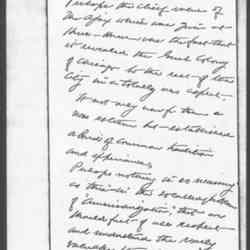 Perhaps the chief value of
the Play which was given at
Hull-House was the fact that
it revealed the Greek Colony
of Chicago to the rest of the
City in a totally new aspect.
It not only gave them a
new relation but established
a bond of common tradition
and
Perhaps nothing is so necessary
as this in the
of "Americanization", that we
should first of all respect
and understand the